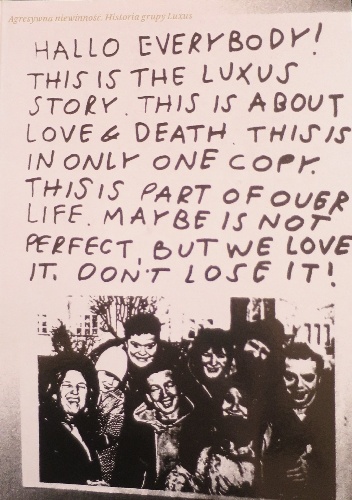 Agresywna niewinność. Historia grupy Luxus
HALLO EVERYBODY!
THIS IS THE LUXUS
STORY. THIS IS ABOUT
LOVE & DEATH. THIS IS
IN ONLY ONE COPY.
THIS IS PART OF OUER
LIFE. MAYBE IS NOT
PERFECT, BUT WE LOVE
IT. DON'T LOSE IT!